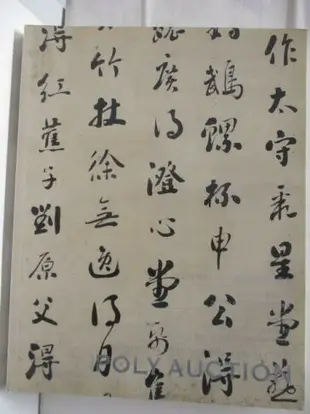 作太守星堂
鵡螺杯申公得
得澄心堂
竹杖徐無逸得月
得紅蕉子劉原父得
POLY AUCTION